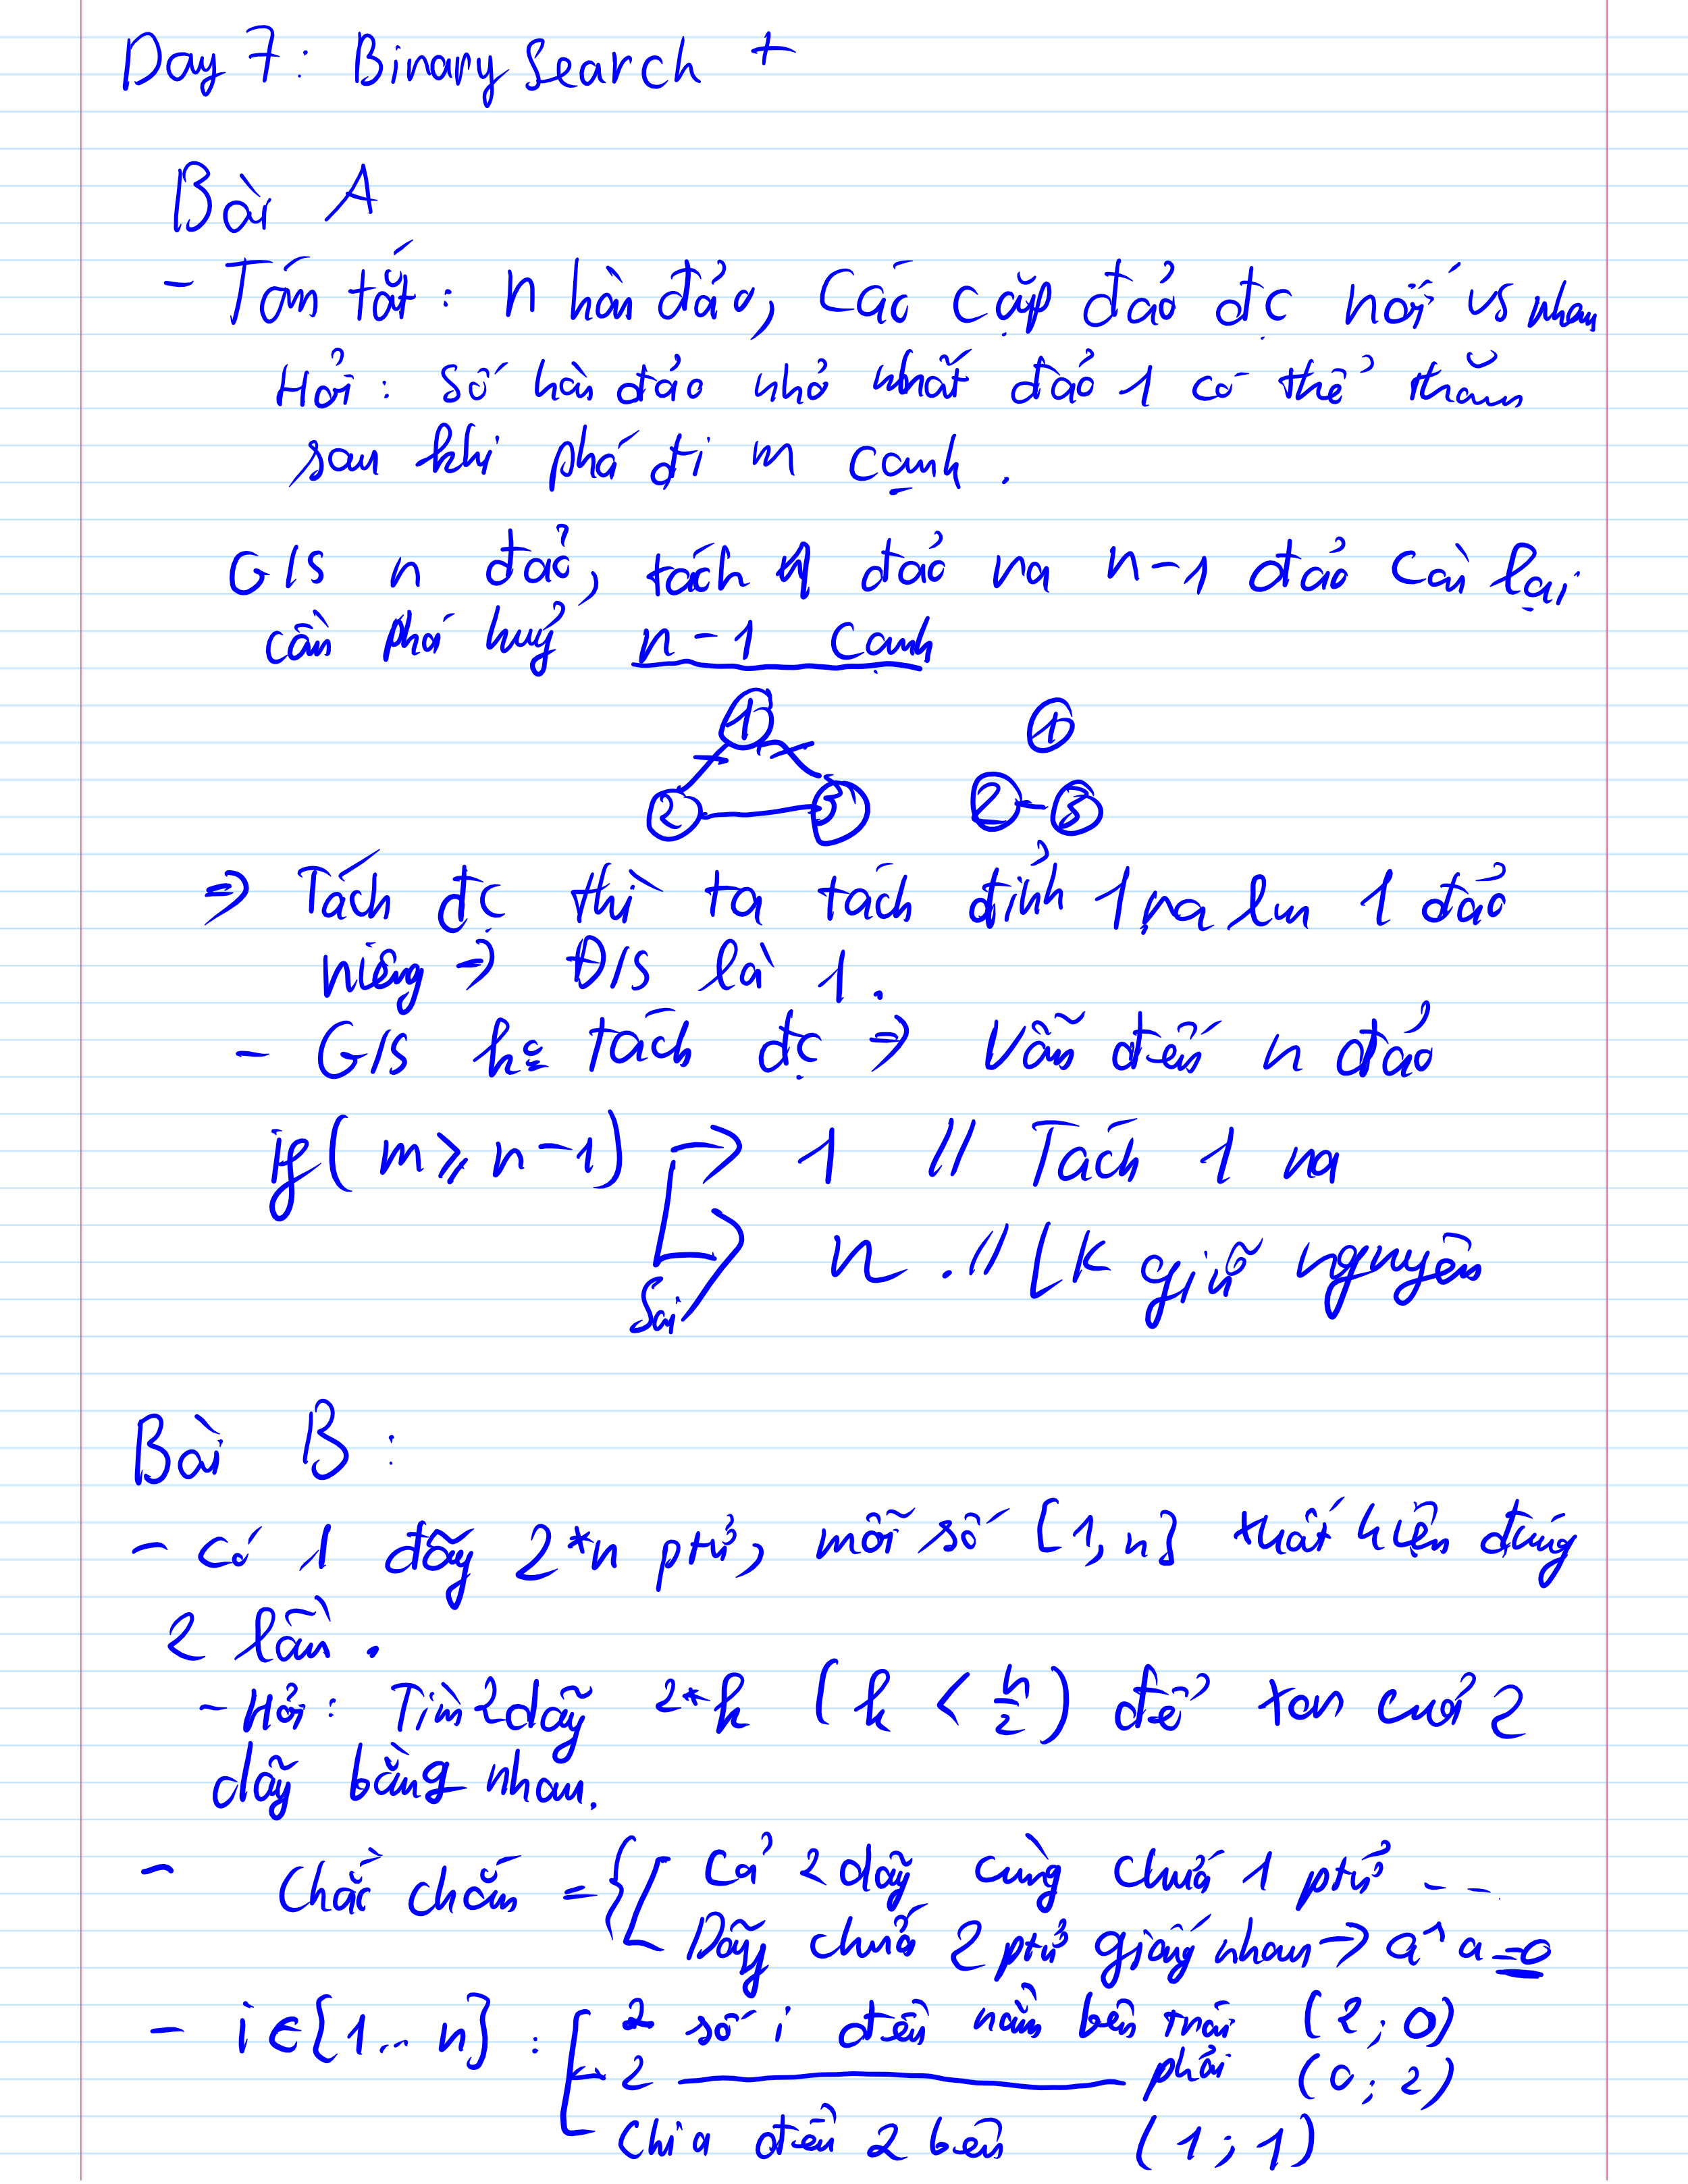 Day 7: Binary Search +
Bài A
- Tóm tắt: n hòn đảo, Các cặp đảo đc nối vs nhau
Hỏi: Số hòn đảo nhỏ nhất đảo 1 có thể thăm
sau khi phá đi m cạnh.
G/S n đảo, tách 1 đảo ra n-1 đảo còn lại
cần phá huỷ n-1 cạnh
1 1
2 3 2 3
=> Tách đc thì ta tách đỉnh 1 ra lm 1 đảo
riêng => Đ/S là 1.
- G/S k tách đc => Vẫn đến n đảo
if( m ≥ n-1) -> 1 // Tách 1 ra
n . // LK giữ nguyên
Sai
Bài B:
- Có 1 dãy 2*n ptử, mỗi số [1, n] xuất hiện đúng
2 lần.
- Hỏi: Tìm 2 dãy 2*k (k < n/2) để xor cuả 2
dãy bằng nhau.
- Chắc chắn = { [ Cả 2 dãy cùng chứa 1 ptử ---
Dãy chứa 2 ptử giống nhau -> a^a = 0
- i ∈ {1... n} : [ 2 số i đều nằm bên trái (2; 0)
2 ——— phải (0; 2)
Chia đều 2 bên (1; 1)